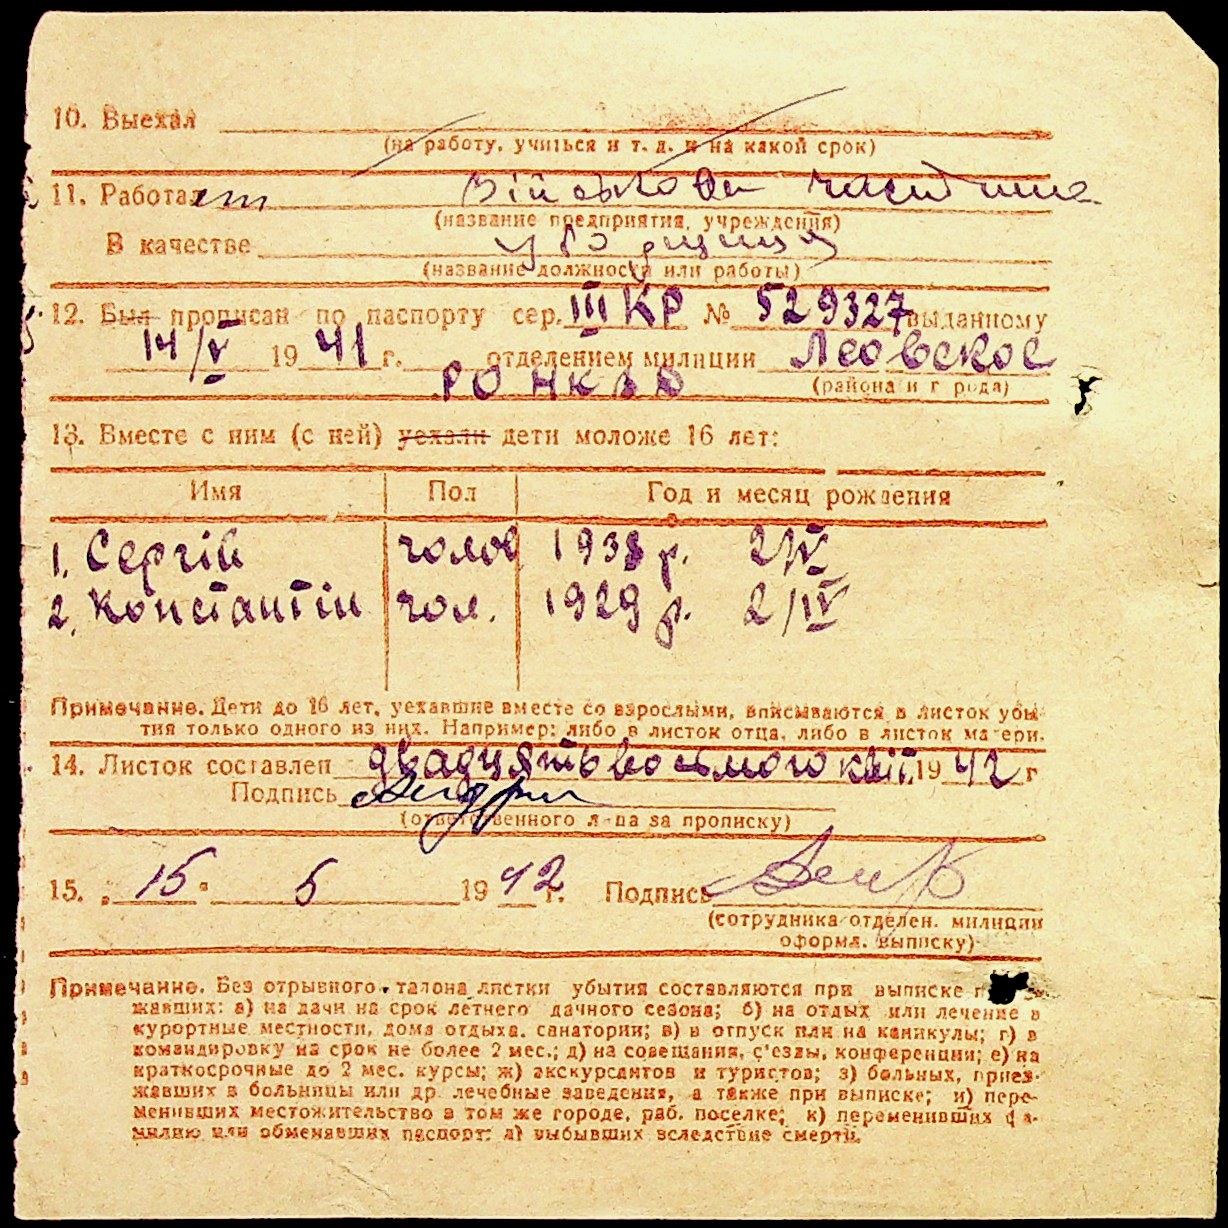 10. Выехал
(на работу, учиться и т. д. и на какой срок)
11. Работает військова частина
(название предприятия, учреждения)
В качестве уборщица
(название должности или работы)
12. Был прописан по паспорту сер. III КР № 529327 выданному
14/V 1941 г. отделением милиции Леовское
РО НКВД (района и города)
13. Вместе с ним (с ней) уехали дети моложе 16 лет:
Имя Пол Год и месяц рождения
1. Сергій чолов 1938 р. 2/IV
2. Константін чол. 1929 р. 2/IV
Примечание. Дети до 16 лет, уехавшие вместе со взрослыми, вписываются в листок убы-
тия только одного из них. Например: либо в листок отца, либо в листок матери.
14. Листок составлен двадцять восьмого квіт. 1942 г
Подпись
(ответственного л-ца за прописку)
15. „15" 5 1942 г. Подпись
(сотрудника отделен. милиции
оформл. выписку)
Примечание. Без отрывного талона листки убытия составляются при выписке
жавших: а) на дачи на срок летнего дачного сезона; б) на отдых или лечение в
курортные местности, дома отдыха, санатории; в) в отпуск или на каникулы; г) в
командировку на срок не более 2 мес.; д) на совещания, с'езды, конференции; е) на
краткосрочные до 2 мес. курсы; ж) экскурсантов и туристов; з) больных, приез-
жавших в больницы или др. лечебные заведения, а также при выписке; и) пере-
менивших местожительство в том же городе, раб. поселке; к) переменивших фа-
милию или обменявших паспорт; л) выбывших вследствие смерти.